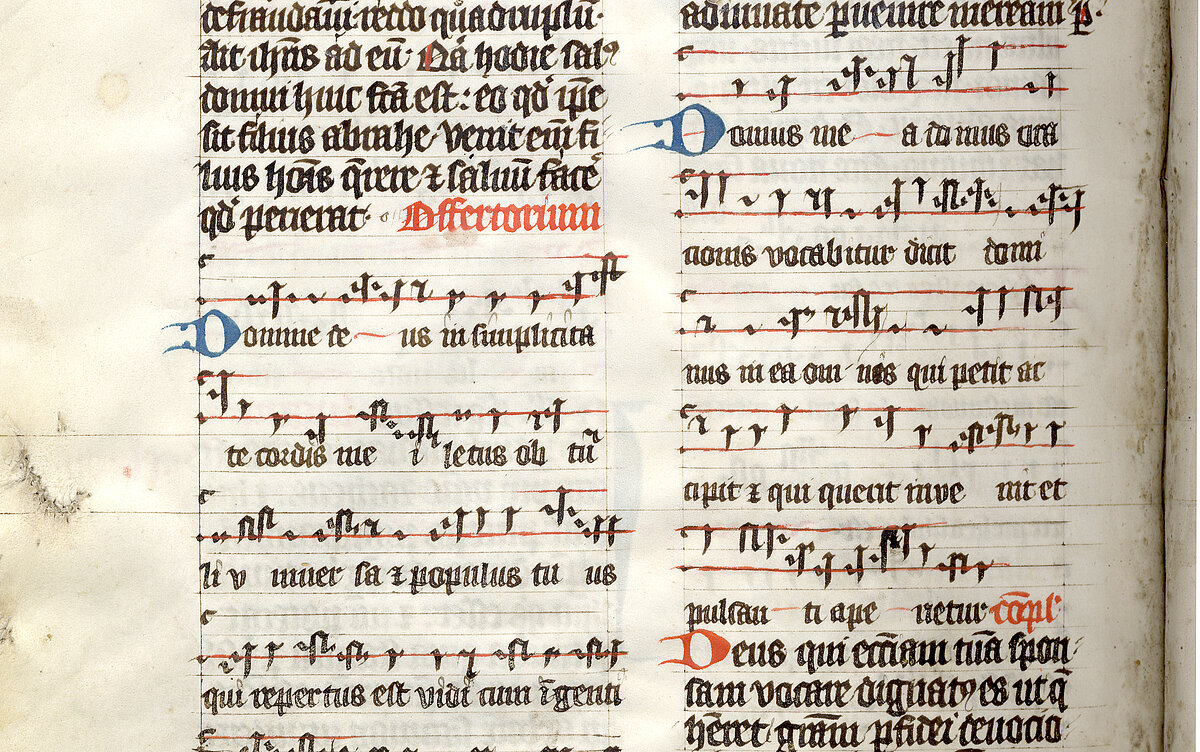 defraudaui reddo qͣdruplū·
Ait ih̄us ad eū· Nā hodie salꝰ
domui huic fc̄a est : eo qd̕ ip̄e
sit filius abrahe· venit eni᷑ fi
lius hōis q̄rere ⁊ saluū face᷑
qd̕ perierat· Offertorium
Domine de us in simplicita
te cordis me i letus ob tu᷑
li v niuer sa ⁊ populus tu us
qui repertus est vidi cum īgenti
ad uitate puenire mereami᷑ p·
Domus me a domus ora
tionis vocabitur dicit domi᷑
nus in ea om nis qui petit ac
cipit ⁊ qui querit inve nit et
pulsan ti ape rietur cōpl᷑
Deus qui ecc̄iam tuā spon
sam vocare dignatꝰ es ut q̄
h̄eret grām p fidei deuocio